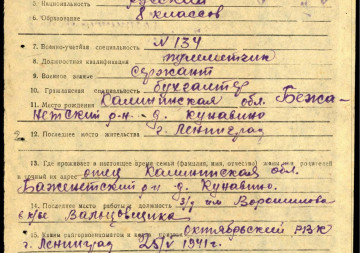 5. Национальность русский
6. Образование 8 классов
7. Военно-учетная специальность № 134
8. Должностная квалификация пулеметчик
9. Военное звание сержант
10. Гражданская специальность бухгалтер
11. Место рождения Калининская обл. Бежа-
нетский р-н - д. Кунавино
12. Последнее место жительства г. Ленинград
13. Где проживает в настоящее время семья (фамилия, имя, отчество) жены или родителей
и точный их адрес отец Калининская обл.
Баженетский р-н д. Кунавино.
14. Последнее место работы и должность з/д им Ворошилова
в к/ве Вальцовщика
15. Каким райгорвоенкоматом и когда призван октябрьский РВК
г. Ленинград 25/V 1941 г.